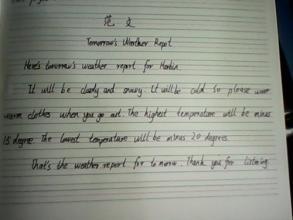 范 文
Tomorrow's Weather Report
Here's tomorrow's weather report for Harbin.
It will be cloudy and snowy. It will be cold. So please wear
warm clothes when you go out. The highest temperature will be minus
15 degree. The lowest temperature will be minus 20 degrees.
That's the weather report for tomorrow. Thank you for listening.